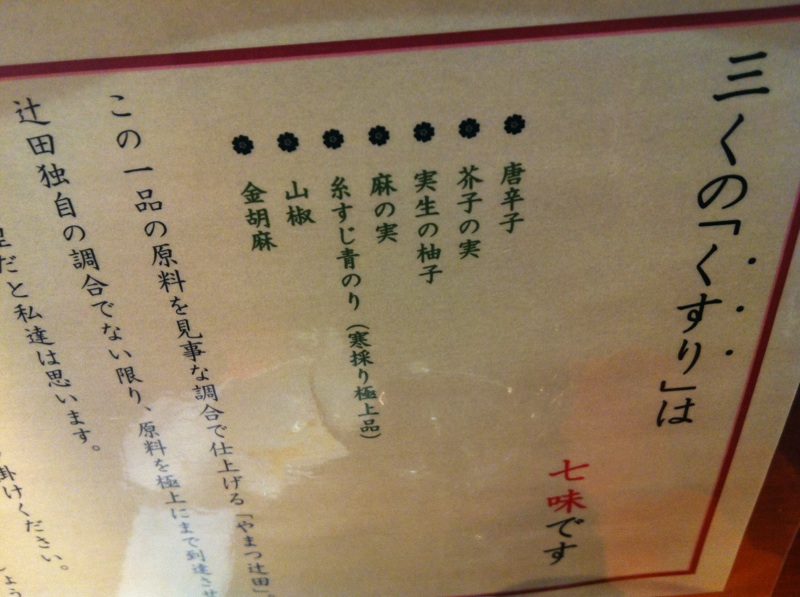 三くの「くすり」は
七味です
唐辛子
芥子の実
実生の柚子
麻の実
糸すじ青のり(寒採り極上品)
山椒
金胡麻
この一品の原料を見事な調合で仕上げる「やまつ辻田」。
辻田独自の調合でない限り、原料を極上にまで到達させ
だと私達は思います。
掛けください。